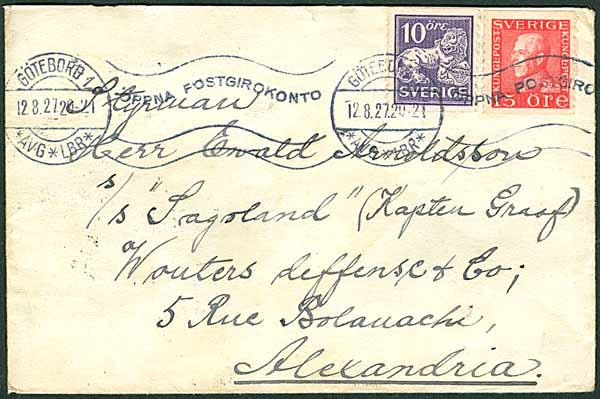 10 ÖRE
SVERIGE
SVERIGE
15 ÖRE
GÖTEBORG 1
12.8.27.20-21
*AVG*LBR*
ÖPPNA POSTGIROKONTO
GÖTEBORG
12.8.27.20-21
*AVG*LBR*
ÖPPNA POSTGIRO
Styrman
Herr Ewald Arnoldsson
s/s "Sagoland" (Kapten Graaf)
Wouters deffense & Co;
5 Rue Bolanachi,
Alexandria.